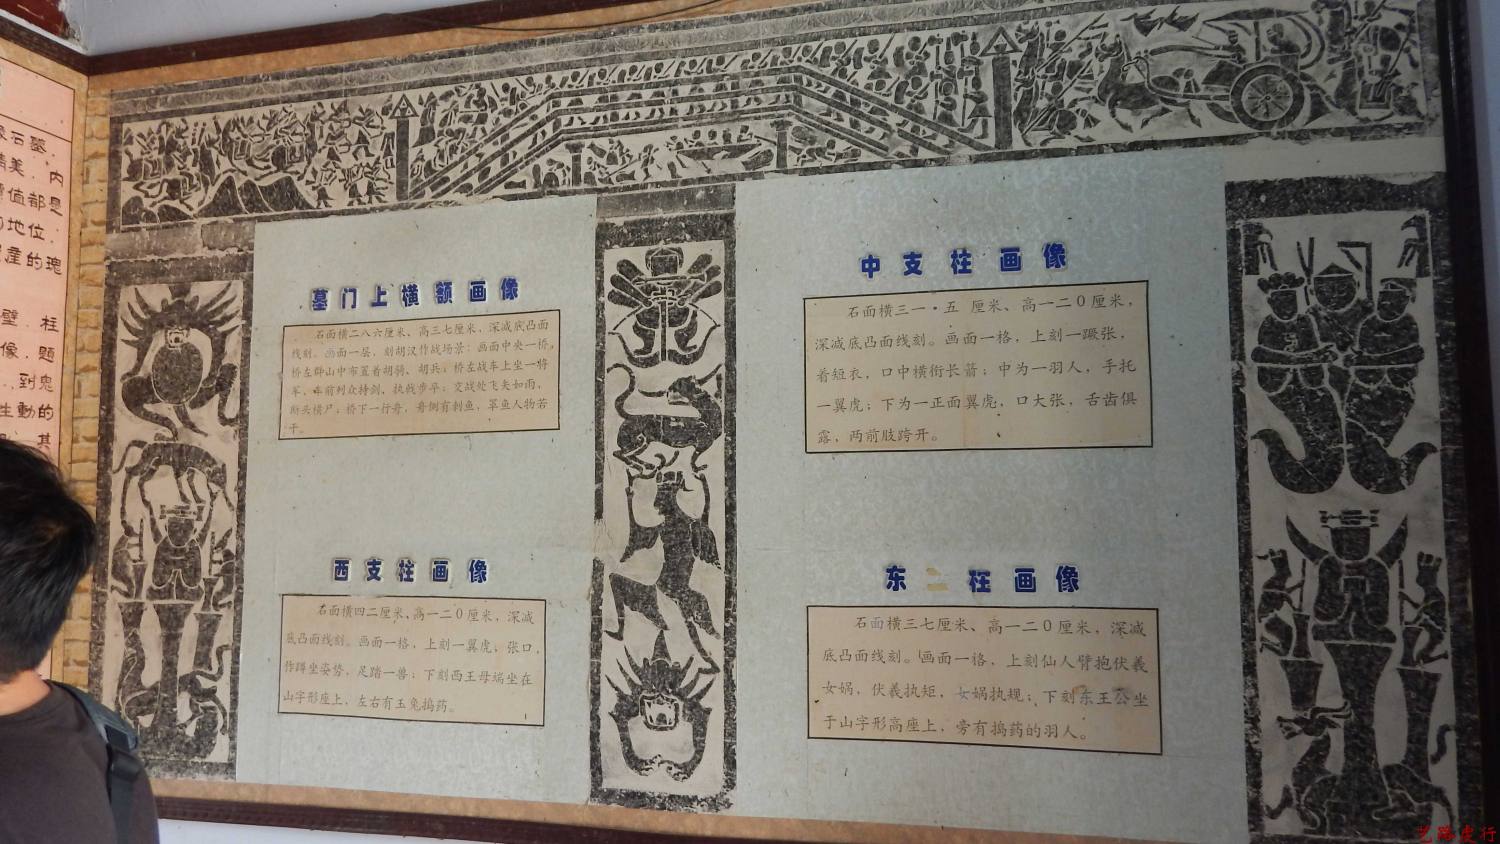 像石墓,
精美,内
价值都是
的地位,
产的瑰
壁、柱
像,题
到鬼
生動的
其
墓门上横额画像
石面横二八六厘米、高三七厘米,深减底凸面
线刻。画面一层,刻胡汉作战场景:画面中央一桥,
桥左群山中布置着胡骑、胡兵;桥左战车上坐一将
军,车前列众持剑、执戟步卒;交战处飞矢如雨,
断头横尸;桥下一行舟,舟侧有刺鱼、罩鱼人物若
干。
西支柱画像
石面横四二厘米、高一二0厘米,深减
底凸面线刻。画面一格,上刻一翼虎;张口,
作蹲坐姿势,足踏一兽;下刻西王母端坐在
山字形座上,左右有玉兔捣药。
中支柱画像
石面横三一·五 厘米、高一二0厘米,
深减底凸面线刻。画面一格,上刻一蹶张,
着短衣,口中横衔长箭;中为一羽人,手托
一翼虎;下为一正面翼虎,口大张,舌齿俱
露,两前肢跨开。
东 柱画像
石面横三七厘米、高一二0厘米,深减
底凸面线刻。画面一格,上刻仙人臂抱伏羲
女娲,伏羲执矩,女娲执规;下刻东王公坐
于山字形高座上,旁有捣药的羽人。
艺路史行